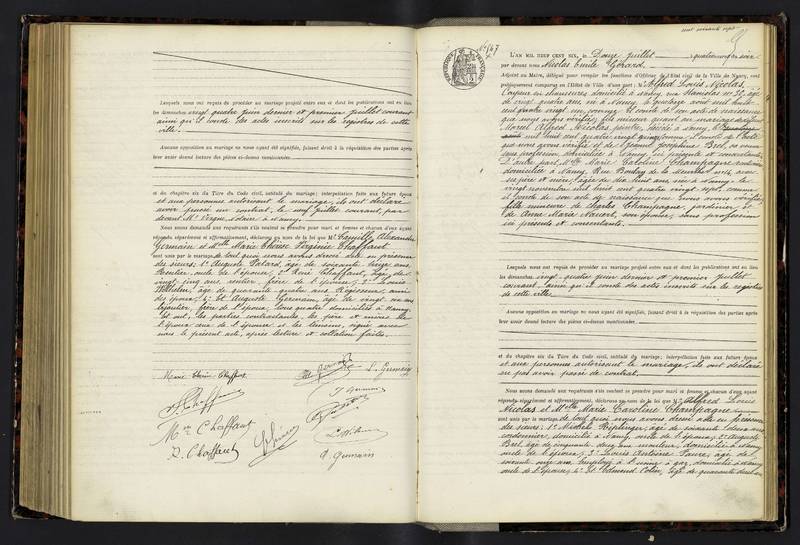 Lesquels nous ont requis de procéder au mariage projeté entre eux et dont les publications ont eu lieu
les dimanches vingt quatre juin dernier et premier juillet courant
ainsi qu'il conste des actes inscrits sur les registres de cette
ville.
Aucune opposition au mariage ne nous ayant été signifiée, faisant droit à la réquisition des parties après
leur avoir donné lecture des pièces ci-dessus mentionnées
et du chapitre six du Titre du Code civil, intitulé du mariage; interpellation faite aux futurs époux
et aux personnes autorisant le mariage, ils ont déclaré
avoir passé un contrat, le neuf juillet courant, par
devant Me Vergne, notaire à Nancy.
Nous avons demandé aux requérants s'ils veulent se prendre pour mari et femme et chacun d'eux ayant
répondu séparément et affirmativement, déclarons au nom de la loi que Mr Camille Alexandre
Germain et Melle Marie Thérèse Virginie Chaffaut
sont unis par le mariage, de tout quoi nous avons dressé acte en présence
des sieurs: 1° Auguste Palard, âgé de soixante treize ans
rentier, oncle de l'épouse; 2° René Chaffaut, âgé de
vingt cinq ans, rentier, frère de l'épouse; 3° Louis
Wilhelm, âgé de quarante quatre ans, Régisseur, ami
des époux; 4° et Auguste Germain, âgé de vingt six ans
, frère de l'époux, tous quatre domiciliés à Nancy.
Et ont, les parties contractantes, les père et mère de
l'époux ceux de l'épouse et les témoins, signé avec
nous le présent acte, après lecture et collation faites.
Marie Thérèse Chaffaut Germain L. Germain
Chaffaut J. Germain
Mme Chaffaut
R. Chaffaut L. Wilhelm
A. Germain
cent soixante sept
No 147
L'AN MIL NEUF CENT SIX, le Douze juillet à quatre heures du soir
par devant nous Nicolas Emile Gérard,
Adjoint au Maire, délégué pour remplir les fonctions d'Officier de l'État civil de la Ville de Nancy, sont
publiquement comparus en l'Hôtel de Ville d'une part: M. Alfred Louis Nicolas,
Coupeur en chaussures, domicilié à Nancy, rue Stanislas no 30, âgé
de vingt quatre ans, né à Nancy, le quatorze août mil huit
cent quatre vingt un, comme il conste de son acte de naissance
que nous avons vérifié, fils mineur quant au mariage de
Marcel Alfred Nicolas, peintre, décédé à Nancy, le
mil huit cent quatre vingt
que nous avons vérifié et de Jeanne Joséphine Bret, sa veuve
sans profession, domiciliée à Nancy, ici présente et consentante.
D'autre part, Melle Marie Caroline Champagne
domiciliée à Nancy, Rue avec
ses père et mère, âgée de dix huit ans, née à Nancy, le
vingt novembre mil huit cent quatre vingt sept, comme
il conste de son acte de naissance que nous avons vérifié,
fille mineure de Charles Champagne, jardinier, et
de Anne Marie son épouse, sans profession
ici présents et consentants.
Lesquels nous ont requis de procéder au mariage projeté entre eux et dont les publications ont eu lieu
les dimanches vingt quatre juin dernier et premier juillet
courant, ainsi qu'il conste des actes inscrits sur les registres
de cette ville.
Aucune opposition au mariage ne nous ayant été signifiée, faisant droit à la réquisition des parties après
leur avoir donné lecture des pièces ci-dessus mentionnées
et du chapitre six du Titre du Code civil, intitulé du mariage; interpellation faite aux futurs époux
et aux personnes autorisant le mariage, ils ont déclaré
ne pas avoir passé de contrat.
Nous avons demandé aux requérants s'ils veulent se prendre pour mari et femme et chacun d'eux ayant
répondu séparément et affirmativement, déclarons au nom de la loi que Mr Alfred Louis
Nicolas et Melle Marie Caroline Champagne
sont unis par le mariage, de tout quoi nous avons dressé acte en présence
des sieurs: 1° Michel âgé de soixante deux ans
cordonnier, domicilié à Nancy, oncle de l'époux; 2° Auguste
Bret, âgé de cinquante deux ans, domicilié à Nancy
oncle de l'époux; 3° Louis Antoine Faure, âgé de
soixante onze ans, employé à l'usine à gaz, domicilié à Nancy
oncle de l'épouse; 4° et Edmond Colin, âgé de quarante deux ans